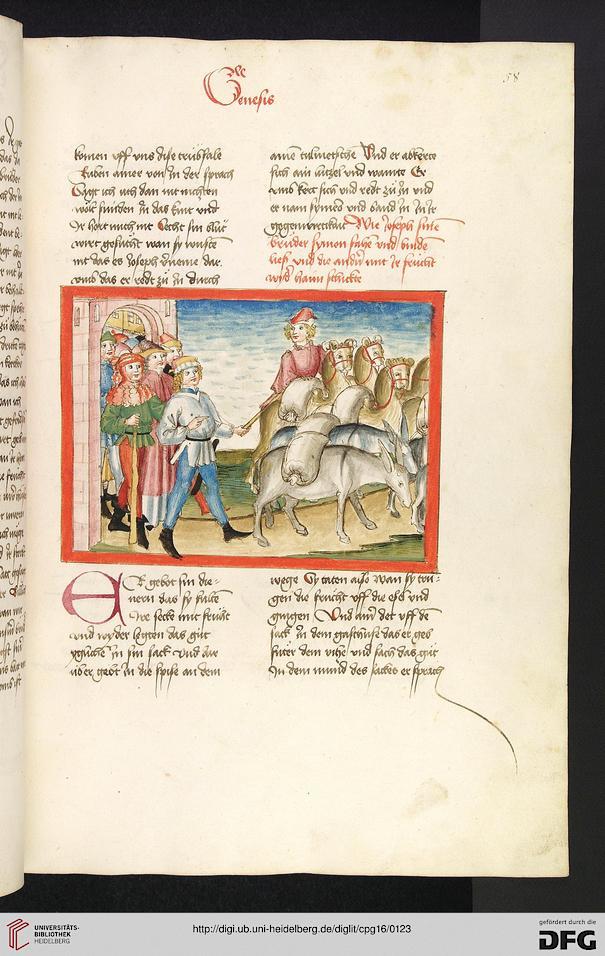 Genesis
58
komen uff uns dise trübsale
Ruben ainer von in der sprach
Sagt ich uch dan nit nichten
wölt sünden in das kint und
Ir hort mich nit Secht sin blut
wirt gesucht wan sy wusten
nit das es Joseph verneme dar
umb das er redt zu in durch
ainen tulmetschen Und er abkerte
sich ain lützel und wainte Er
umb kert sich und redt zu in und
er nam symeon und band in In ir
gegenwirtikait Wie Joseph sine
bruder symon fahen und binden
ließ und die andern mit ir frücht
wider haim schickt
ER gebot sin die-
nern das sy fulten
Ire secke mit frücht
und wider legten das gut
ygliches in sin sack und dar
uber gebt in die spise an dem
wege Sy taten also wan sy tru-
gen die frücht uff die esel und
giengen Und ainer det uff den
sack in dem gasthuse das er geb
futer dem vihe und sach das gut
In dem mund des sackes er sprach
UNIVERSITÄTS-
BIBLIOTHEK
HEIDELBERG
http://digi.ub.uni-heidelberg.de/diglit/cpg16/0123
gefördert durch die
DFG